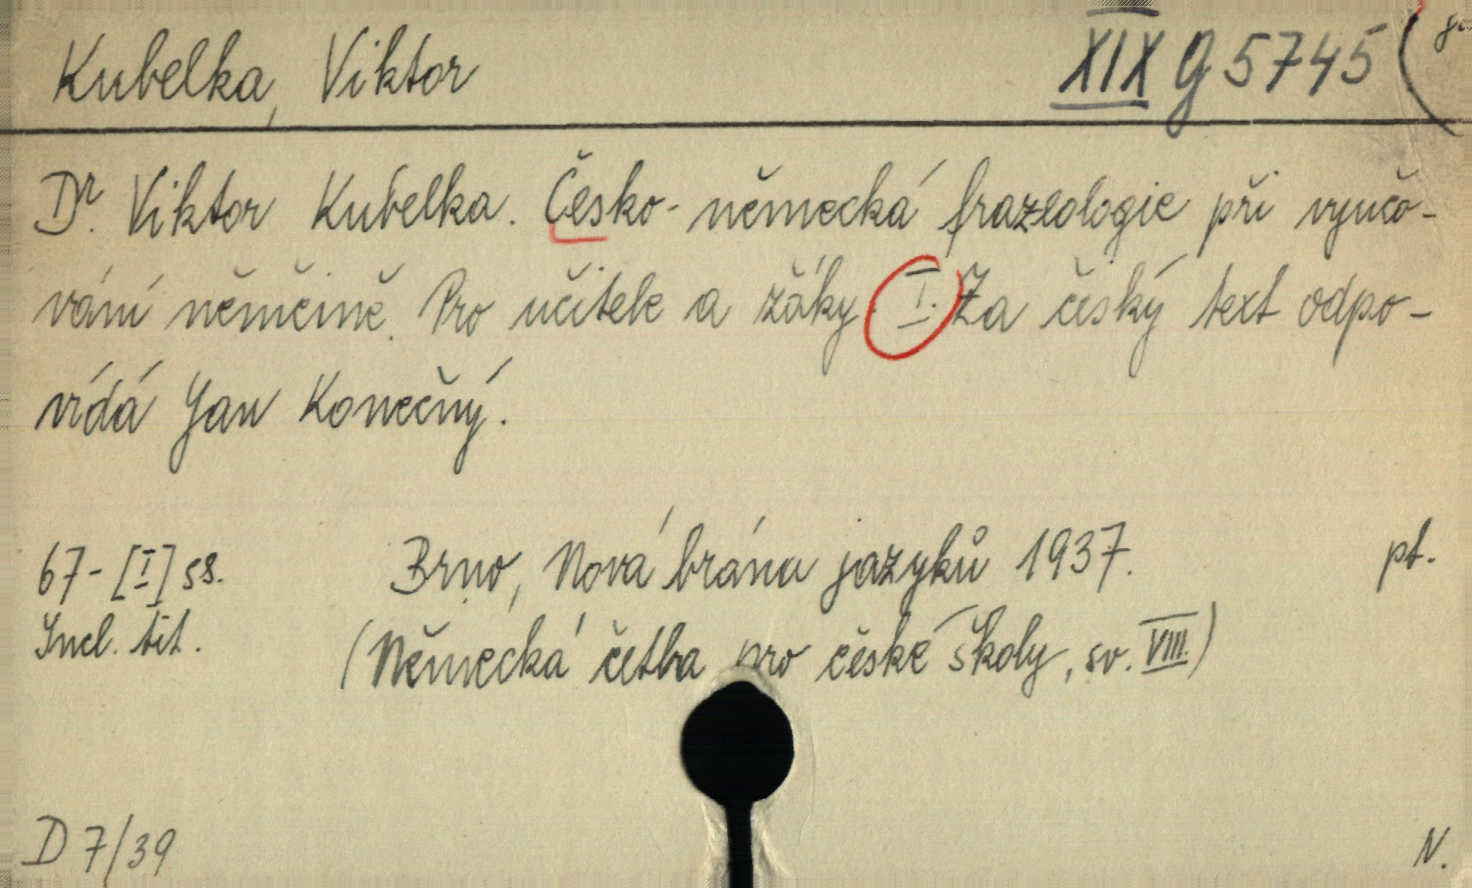 Kubelka, Viktor XIX G 5745
Dr. Viktor Kubelka. Česko-německá frazeologie při vyučo-
vání němčině. Pro učitele a žáky. I. Za český text odpo-
vídá Jan Konečný.
67-[I] ss. Brno, Nová brána jazyků 1937. pt.
Incl. tit. (Německá četba pro české školy, sv. VIII.)
D 7/39 N.